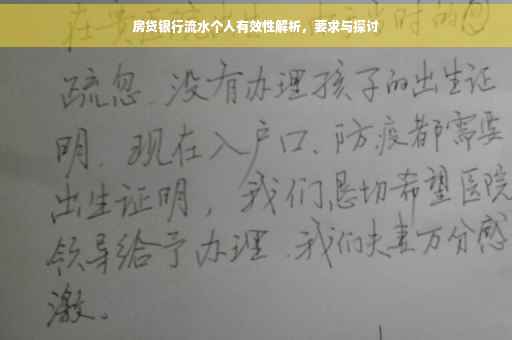 房贷银行流水个人有效性解析，要求与探讨
疏忽、没有办理孩子的出生证
明、现在入户口、防疫都需要
出生证明，我们恳切希望医院
领导给予办理、我们夫妻万分感
激。